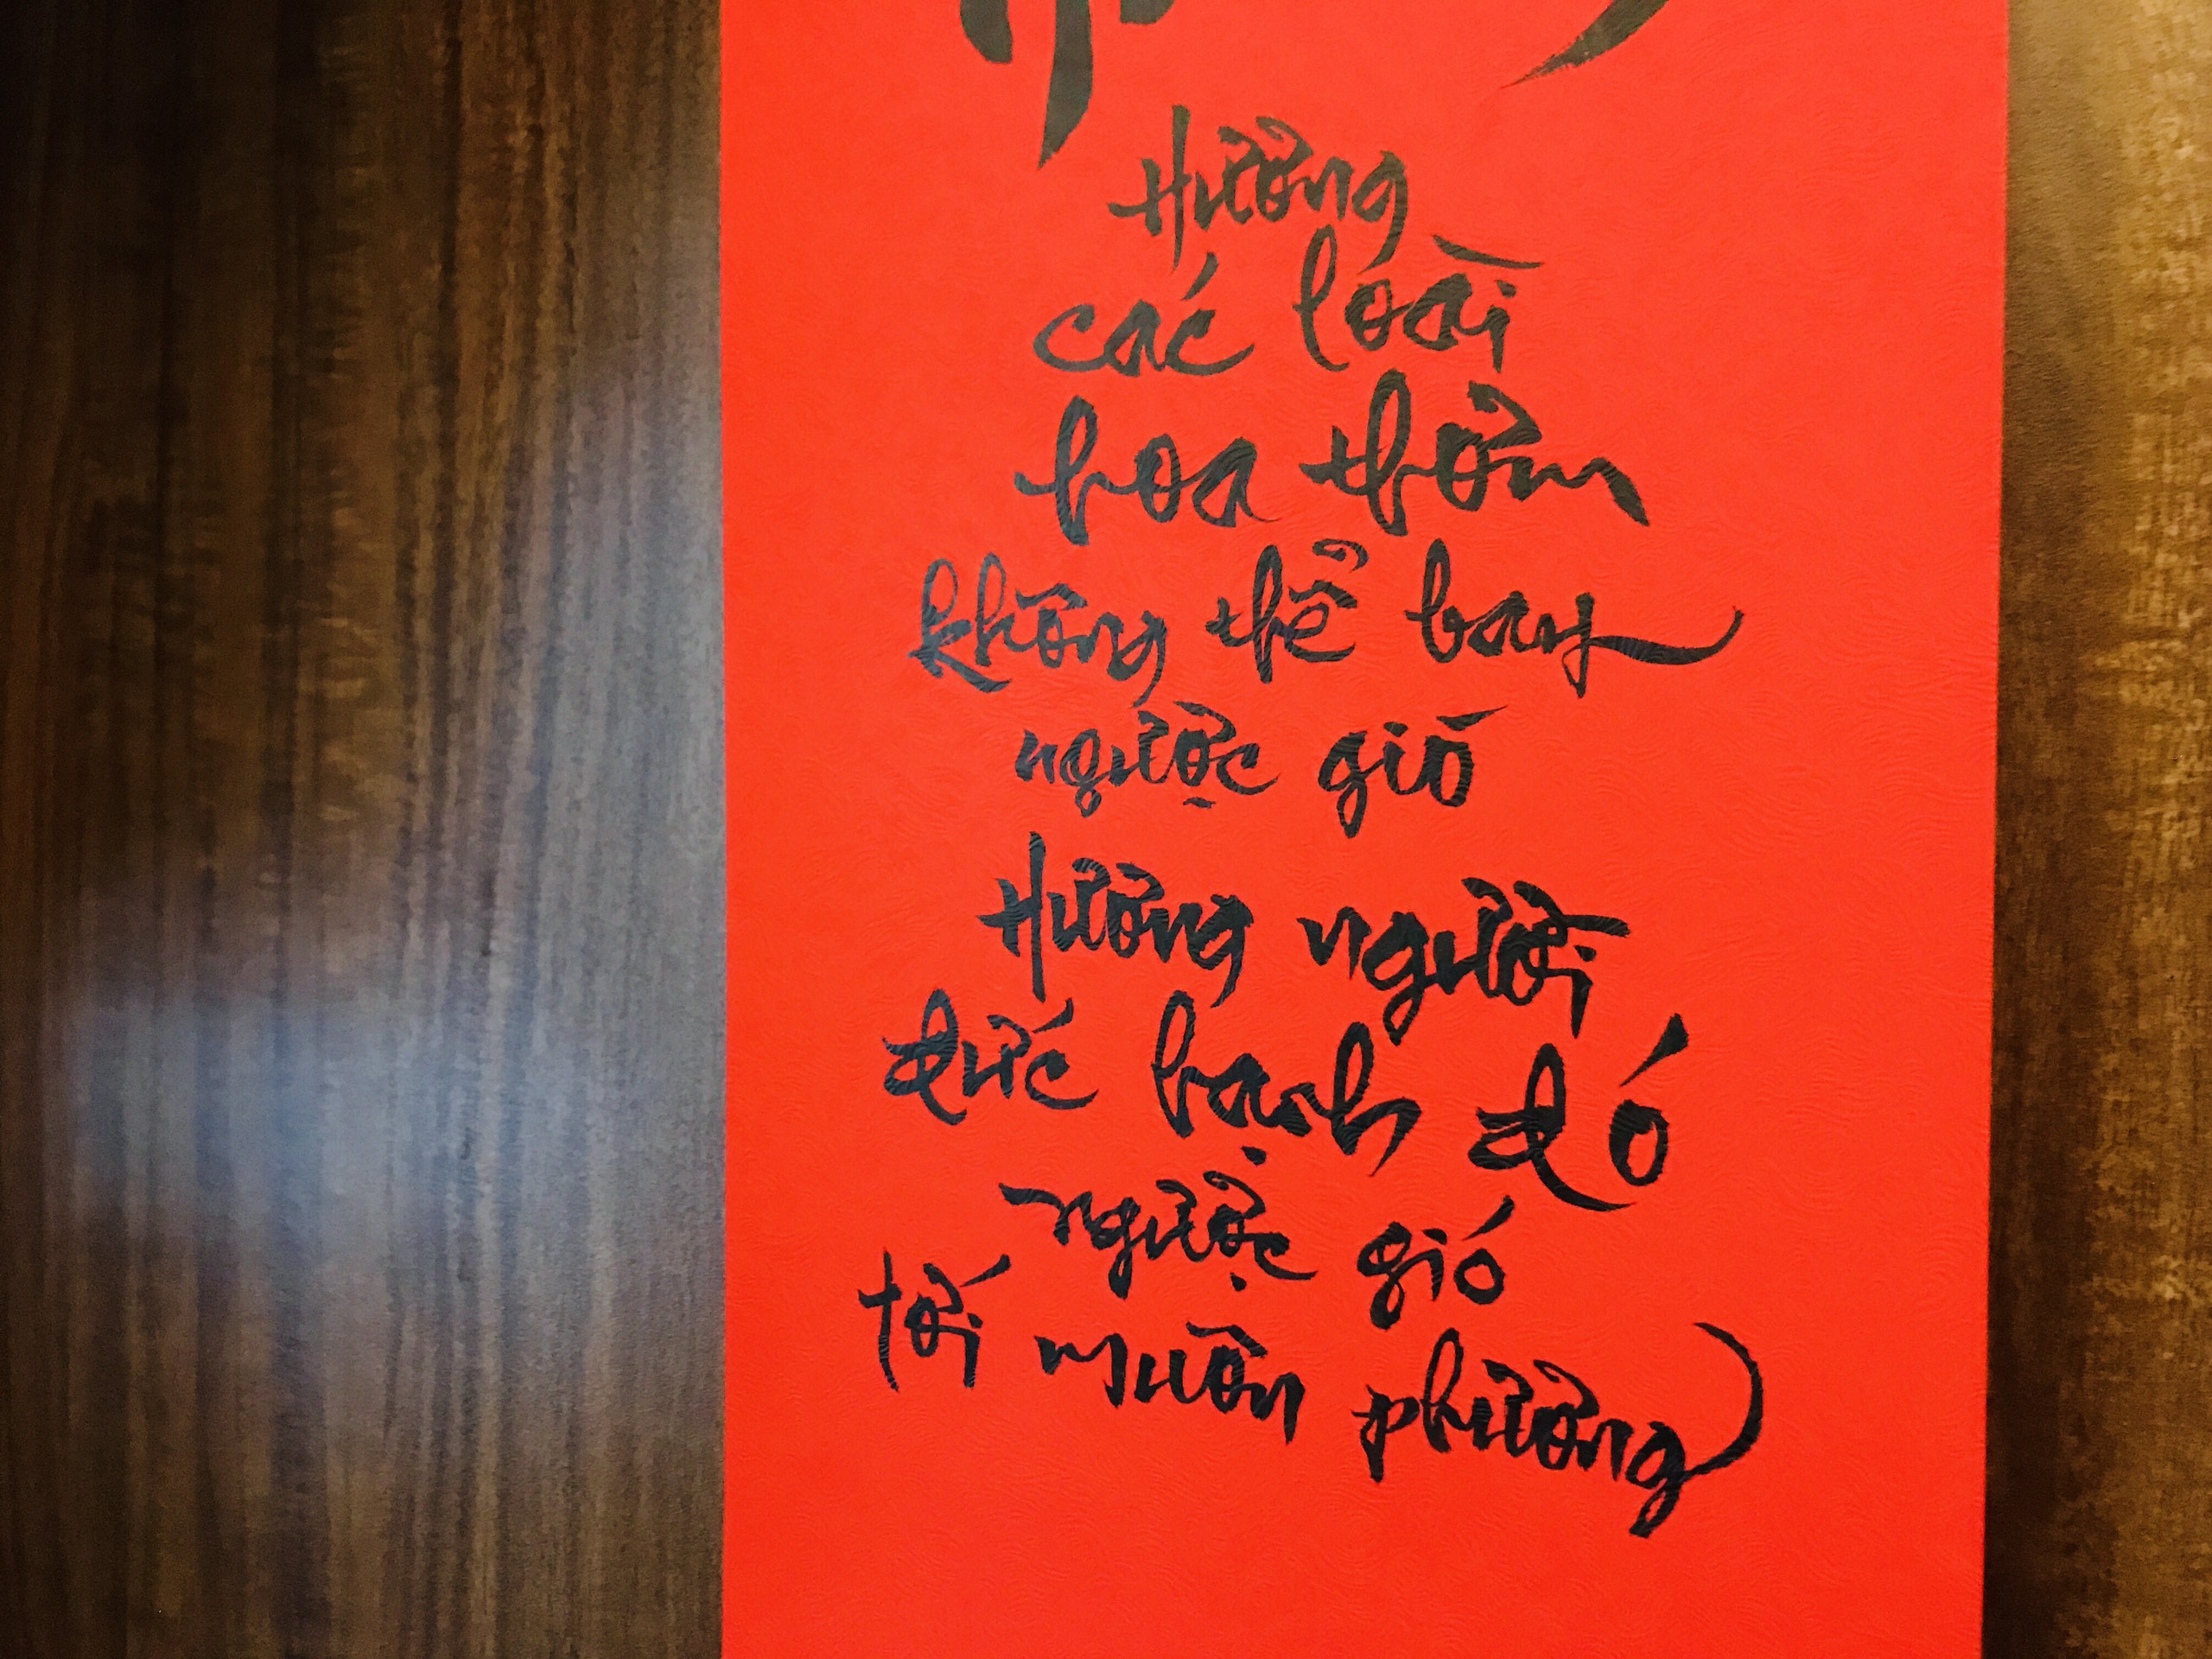 Hương
các loài
hoa thơm
không thể bay
ngược gió
Hương người
đức hạnh đó
ngược gió
tới muôn phương